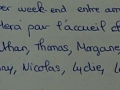 er week-end entre am
léra par l'accueil d
than, Thomas, Morgane,
ay, Nicolas, Lydie, L